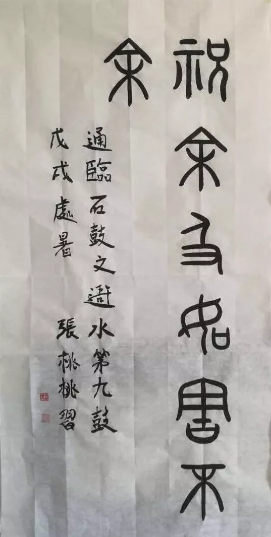 祝余及如害不
余
通臨石鼓文䢩水第九鼓
戊戌處暑 張桃桃習